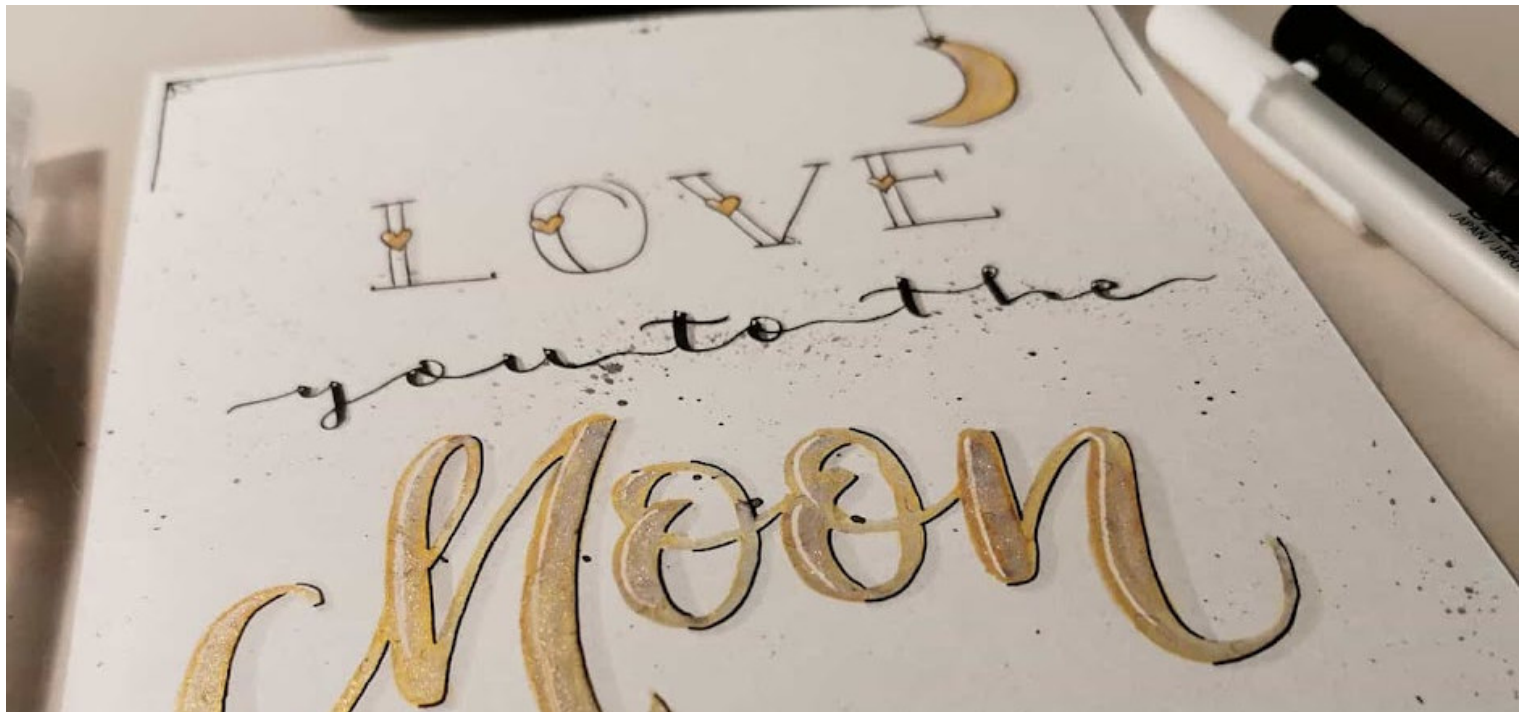 LOVE
you to the
Moon
JAPAN / JAPO